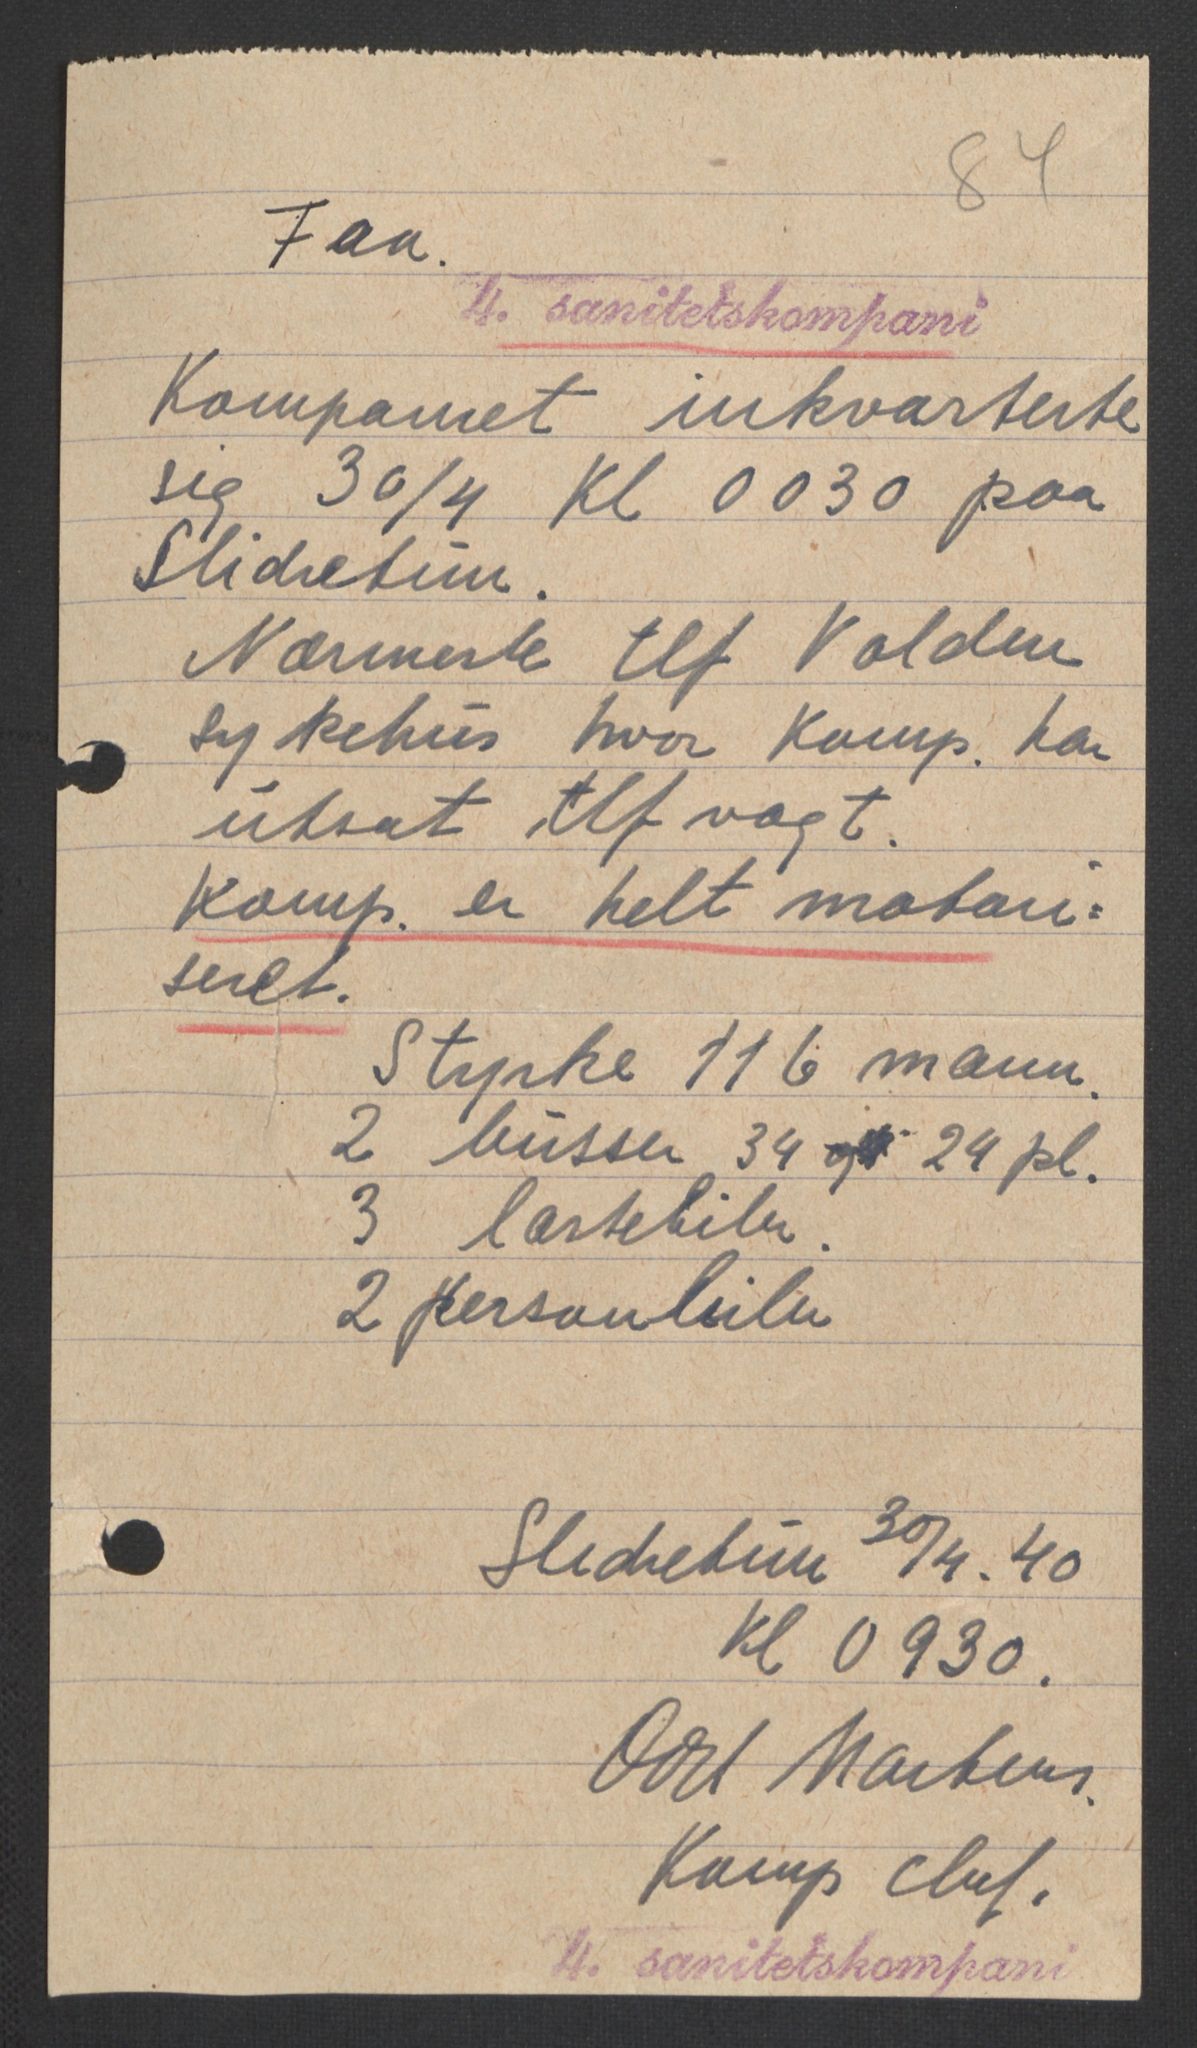 84
Faa.
4. sanitetskompani
Kompaniet inkvarterte
sig 30/4 Kl 0030 paa
Slidretun.
Nærmeste tlf Volden
sykehus hvor Komp. har
utsat tlf vagt.
Komp. er helt motori=
seret.
Styrke 116 mann.
2 busser 34 og 24 pl.
3 lastebiler.
2 personbiler
Slidretun 30/4.40
Kl 0930.
Odd Martens.
Komp chef.
4. sanitetskompani